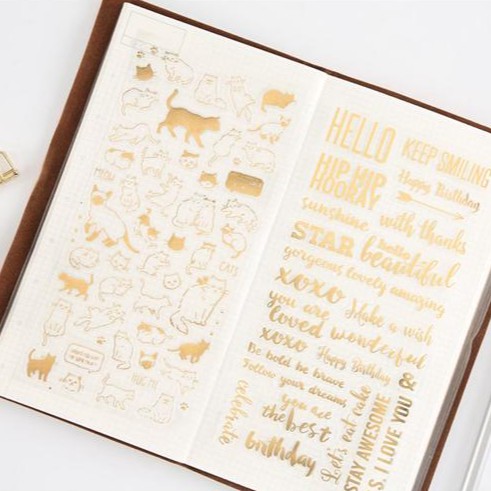 MEOW
CATS
HELLO
KEEP SMILING
HIP HIP
HOORAY
Happy Birthday
sunshine
with thanks
STAR
hello
beautiful
gorgeous lovely amazing
xoxo
Make a wish
you are
loved wonderful
xoxo
Happy Birthday
Be bold be brave
Follow your dreams
you are
the best
birthday
celebrate
Let's eat cake
STAY AWESOME
S. I LOVE YOU
&